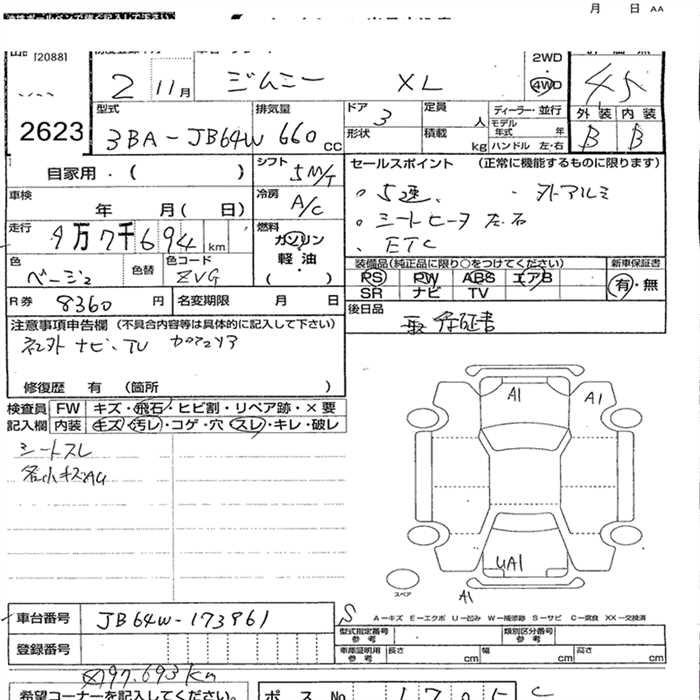 月 日 AA
(20881
2 11月 ジムニー XL
2WD
4WD
4.5
2623
型式 3BA-JB64W
排気量 660 CC
ドア 3
形状
定員 人
積載 kg
ディーラー・並行
モデル年式 年
ハンドル 左・右
外装 内装
B B
自家用・( )
シフト 5M/T
車検 年 月( 日)
冷房 A/C
走行 9万7千694 km
燃料 ガソリン
軽・油
( )
色 ベージュ
色替
色コード ZVG
R券 8360 円
名変期限 月 日
セールスポイント (正常に機能するものに限ります)
・5速、 ・外アルミ
・シートヒータ 左右
・ETC
装備品(純正品に限り○をつけてください)
新車保証書
PS PW ABS エアB
SR ナビ TV
有・無
後日品
取 保証書
注意事項申告欄 (不具合内容等は具体的に記入して下さい)
社外 ナビ・TV
修復歴 有 (箇所 )
検査員記入欄
FW キズ・飛石・ヒビ割・リペア跡・×要
内装 キズ・汚レ・コゲ・穴・スレ・キレ・破レ
シートスレ
各小キズAU
A1
A1
UA1
A1
スペア
S
A-キズ E-エクボ U-凹み W-補修跡 S-サビ C-腐食 XX-交換済
車台番号 JB64W-173961
登録番号
型式指定番号 参考
類別区分番号 参考
車庫証明用 参考 長さ cm 幅 cm 高さ cm
97.693km
希望コーナーを記入してください。
ポス No